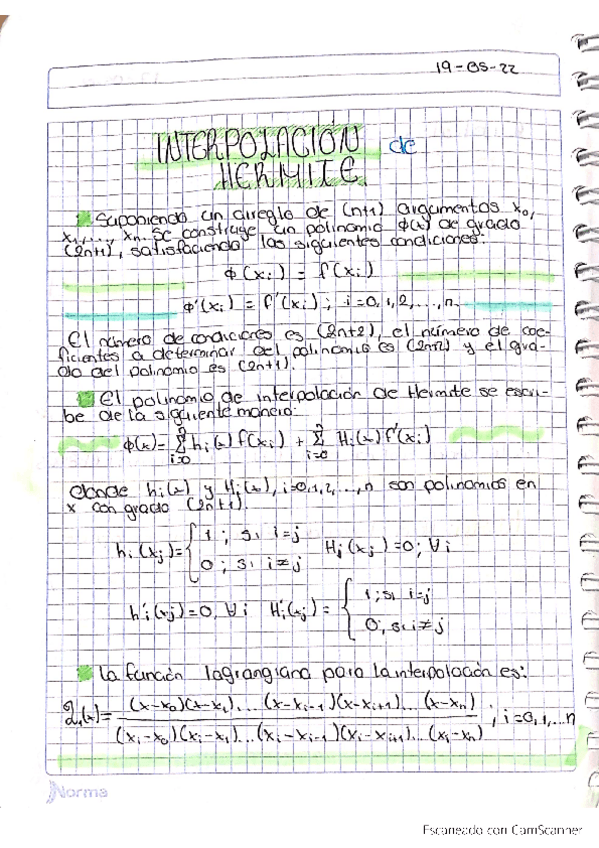 19-05-22
INTERPOLACIÓN de
HERMITE.
Suponiendo un arreglo de (n+1) argumentos x₀,
x₁,..., xₙ. Se construye un polinomio ϕ(x) de grado
(2n+1), satisfaciendo las siguientes condiciones:
ϕ(xᵢ) = f(xᵢ)
ϕ'(xᵢ) = f'(xᵢ) ; i=0,1,2,...,n.
El número de condiciones es (2n+2), el número de coe-
ficientes a determinar del polinomio es (2n+2) y el gra-
do del polinomio es (2n+1).
El polinomio de interpolación de Hermite se escri-
be de la siguiente manera:
ϕ(x)= Σⁿᵢ₌₀ hᵢ(x) f(xᵢ) + Σⁿᵢ₌₀ Hᵢ(x) f'(xᵢ)
donde hᵢ(x) y Hᵢ(x), i=0,1,2,...,n son polinomios en
x con grado (2n+1).
hᵢ(xⱼ)= { 1 ; si i=j Hᵢ(xⱼ)=0; ∀i
0 ; si i≠j
h'ᵢ(xⱼ)=0, ∀i H'ᵢ(xⱼ)= { 1 ; si i=j
0, si i≠j
La función lagrangiana para la interpolación es:
ℒᵢ(x)= (x-x₀)(x-x₁)...(x-xᵢ₋₁)(x-xᵢ₊₁)...(x-xₙ) ; i=0,1,...n
(xᵢ-x₀)(xᵢ-x₁)...(xᵢ-xᵢ₋₁)(xᵢ-xᵢ₊₁)...(xᵢ-xₙ)
Norma
Escaneado con CamScanner